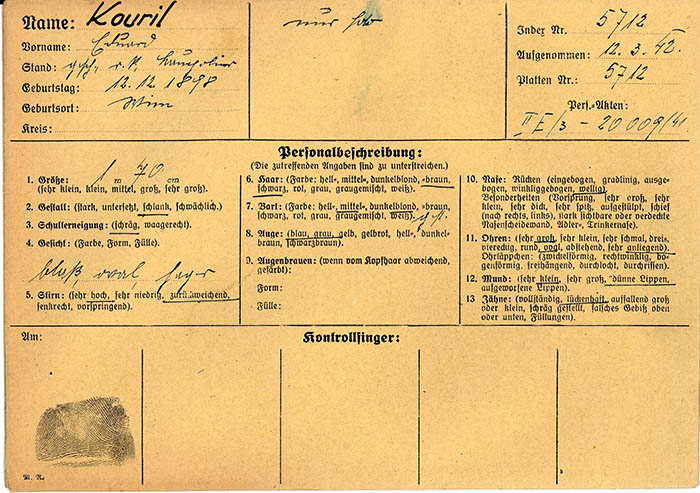 Name: Kouril
Vorname: Eduard
Stand: gesch., r. k.,
Geburtstag: 12.12.1898
Geburtsort: Wien
Kreis:
nur
Index Nr. 5712
Aufgenommen: 12.3.42.
Platten Nr.: 5712
Pers.-Akten:
II E/3 - 20 009/41
Personalbeschreibung:
(Die zutreffenden Angaben sind zu unterstreichen.)
1. Größe: 1 m 70 cm
(sehr klein, klein, mittel, groß, sehr groß).
2. Gestalt: (stark, untersetzt, schlank, schwächlich).
3. Schulterneigung: (schräg, waagerecht).
4. Gesicht: (Farbe, Form, Fülle).
blaß, oval, hager
5. Stirn: (sehr hoch, sehr niedrig, zurückweichend,
senkrecht, vorspringend).
6. Haar: (Farbe: hell-, mittel-, dunkelblond, -braun,
schwarz, rot, grau, graugemischt, weiß).
7. Bart: (Farbe: hell-, mittel-, dunkelblond, -braun,
schwarz, rot, grau, graugemischt, weiß).
8. Auge: (blau, grau, gelb, gelbrot, hell-, dunkel-
braun, schwarzbraun).
9. Augenbrauen: (wenn vom Kopfhaar abweichend,
gefärbt):
Form:
Fülle:
10. Nase: Rücken (eingebogen, gradlinig, ausge-
bogen, winkliggebogen, wellig).
Besonderheiten (Vorsprung, sehr groß, sehr
klein, sehr dick, sehr spitz, aufgestülpt, schief
(nach rechts, links), stark sichtbare oder verdeckte
Nasenscheidewand, Adler-, Trinkernase).
11. Ohren: (sehr groß, sehr klein, sehr schmal, dreis,
viereckig, rund, oval, abstehend, sehr anliegend).
Ohrläppchen: (zwickelförmig, rechtwinklig, bo-
genförmig, freihängend, durchlocht, durchrissen).
12. Mund: (sehr klein, sehr groß, dünne Lippen,
aufgeworfene Lippen).
13 Zähne: (vollständig, lückenhaft, auffallend groß
oder klein, schräg gestellt, falsches Gebiß oben
oder unten, Füllungen).
Am:
Kontrollfinger: